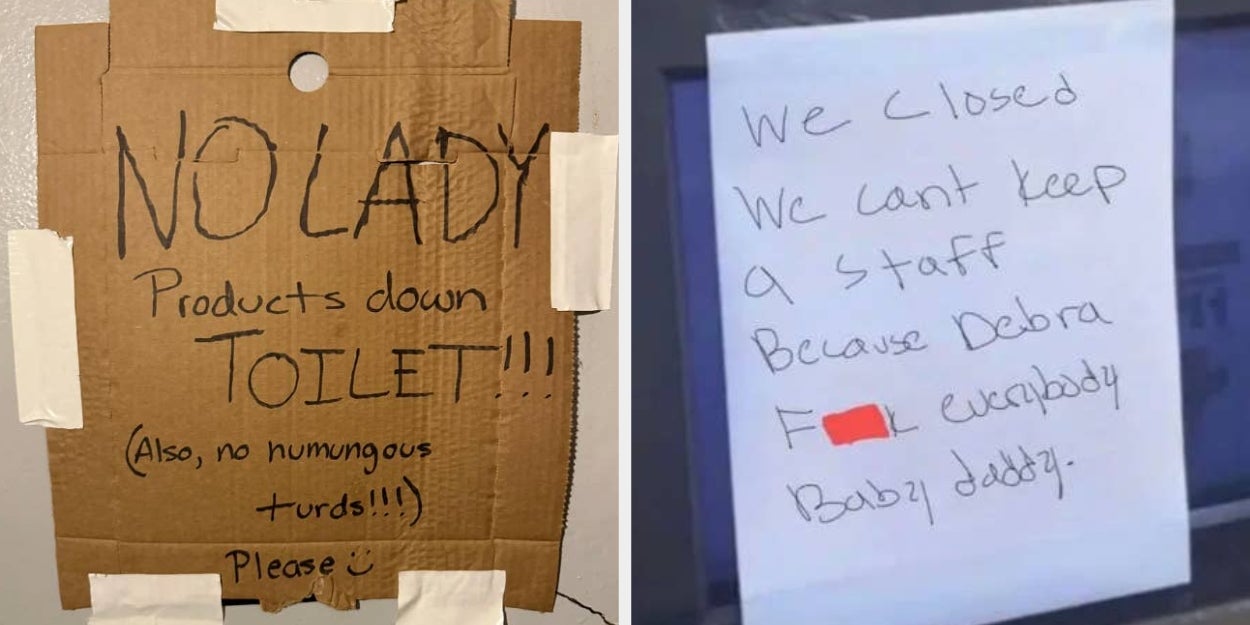 NO LADY
Products down
TOILET!!!
(Also, no numungous
turds!!!)
Please :)
We closed
We cant keep
a staff
Because Debra
F k everybody
Baby daddy.